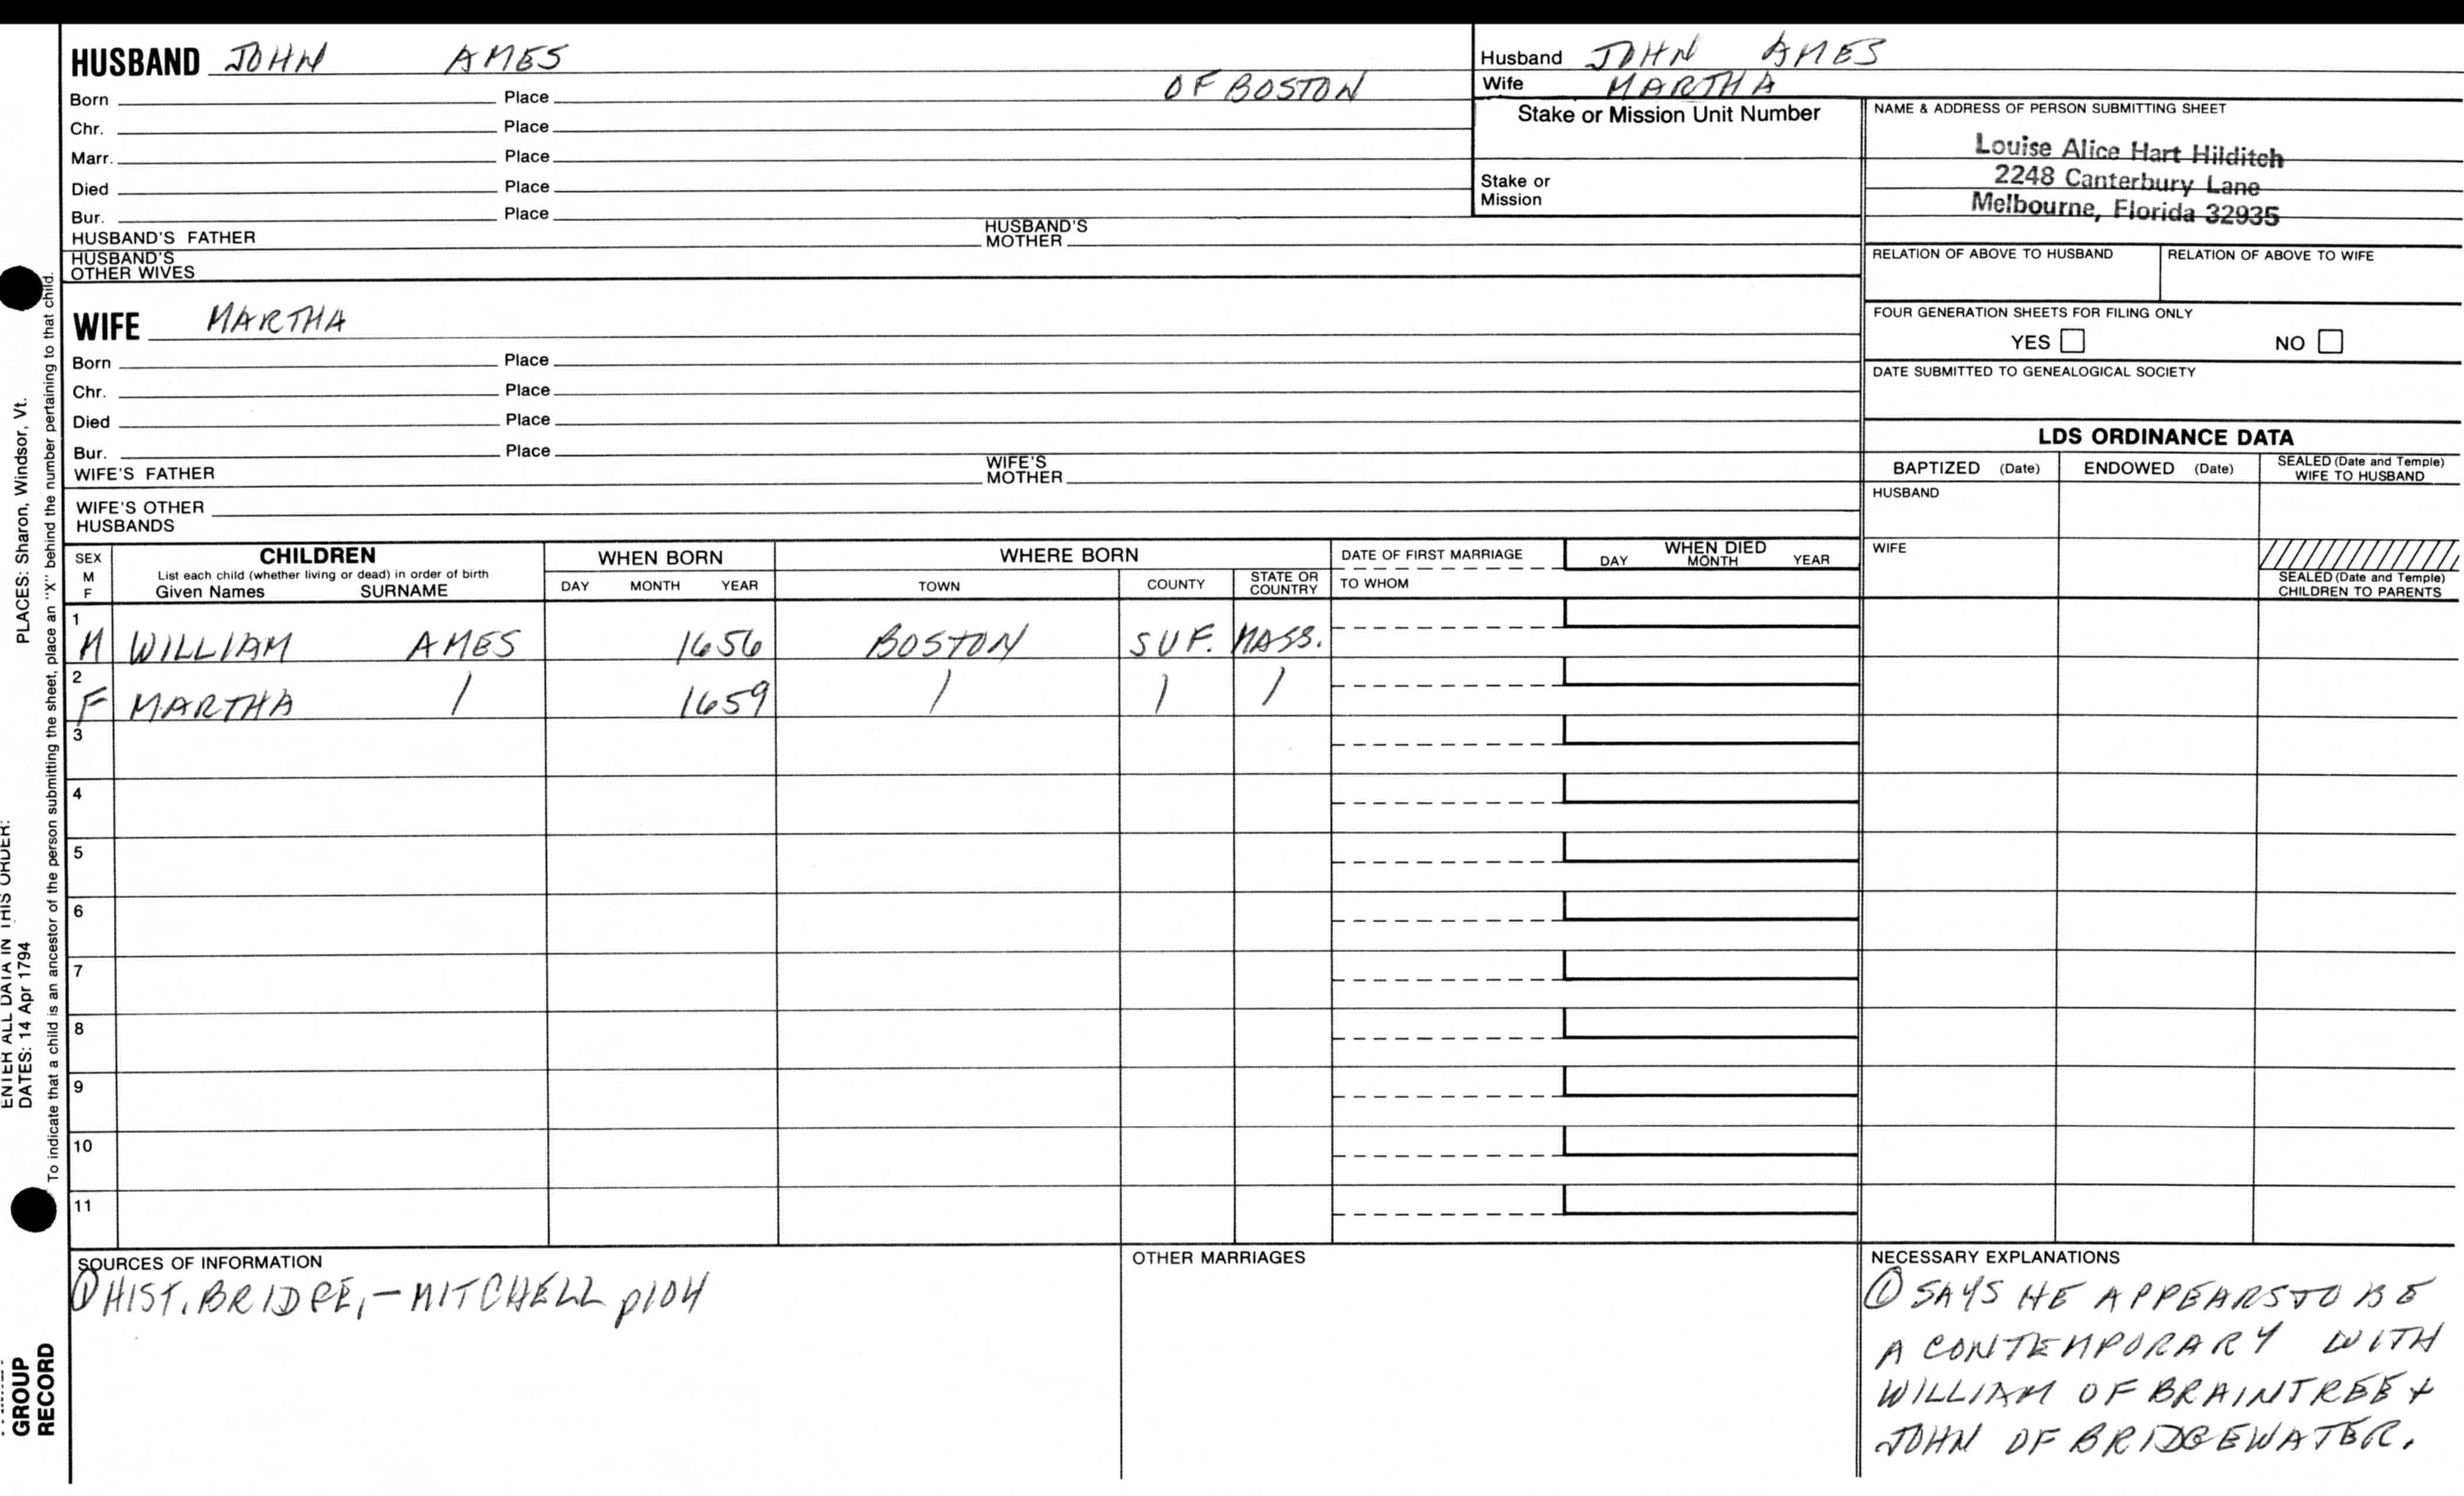 HUSBAND JOHN AMES
OF BOSTON
Born Place
Chr. Place
Marr. Place
Died Place
Bur. Place
HUSBAND'S FATHER HUSBAND'S MOTHER
HUSBAND'S OTHER WIVES
Husband JOHN AMES
Wife MARTHA
Stake or Mission Unit Number
Stake or
Mission
NAME & ADDRESS OF PERSON SUBMITTING SHEET
Louise Alice Hart Hilditch
2248 Canterbury Lane
Melbourne, Florida 32935
RELATION OF ABOVE TO HUSBAND RELATION OF ABOVE TO WIFE
FOUR GENERATION SHEETS FOR FILING ONLY
YES NO
DATE SUBMITTED TO GENEALOGICAL SOCIETY
WIFE MARTHA
Born Place
Chr. Place
Died Place
Bur. Place
WIFE'S FATHER WIFE'S MOTHER
WIFE'S OTHER
HUSBANDS
LDS ORDINANCE DATA
BAPTIZED (Date) ENDOWED (Date) SEALED (Date and Temple) WIFE TO HUSBAND
HUSBAND
WIFE
SEALED (Date and Temple)
CHILDREN TO PARENTS
SEX M F
CHILDREN
List each child (whether living or dead) in order of birth
Given Names SURNAME
WHEN BORN
DAY MONTH YEAR
WHERE BORN
TOWN COUNTY STATE OR COUNTRY
DATE OF FIRST MARRIAGE
TO WHOM
WHEN DIED
DAY MONTH YEAR
1 M WILLIAM AMES 1656 BOSTON SUF. MASS.
2 F MARTHA / 1659 / / /
3
4
5
6
7
8
9
10
11
SOURCES OF INFORMATION
① HIST. BRIDGE, - MITCHELL p104
OTHER MARRIAGES
NECESSARY EXPLANATIONS
① SAYS HE APPEARS TO BE
A CONTEMPORARY WITH
WILLIAM OF BRAINTREE +
JOHN OF BRIDGEWATER.
PLACES: Sharon, Windsor, Vt.
To indicate that a child is an ancestor of the person submitting the sheet, place an "X" behind the number pertaining to that child.
ENTER ALL DATA IN THIS ORDER:
DATES: 14 Apr 1794
GROUP
RECORD